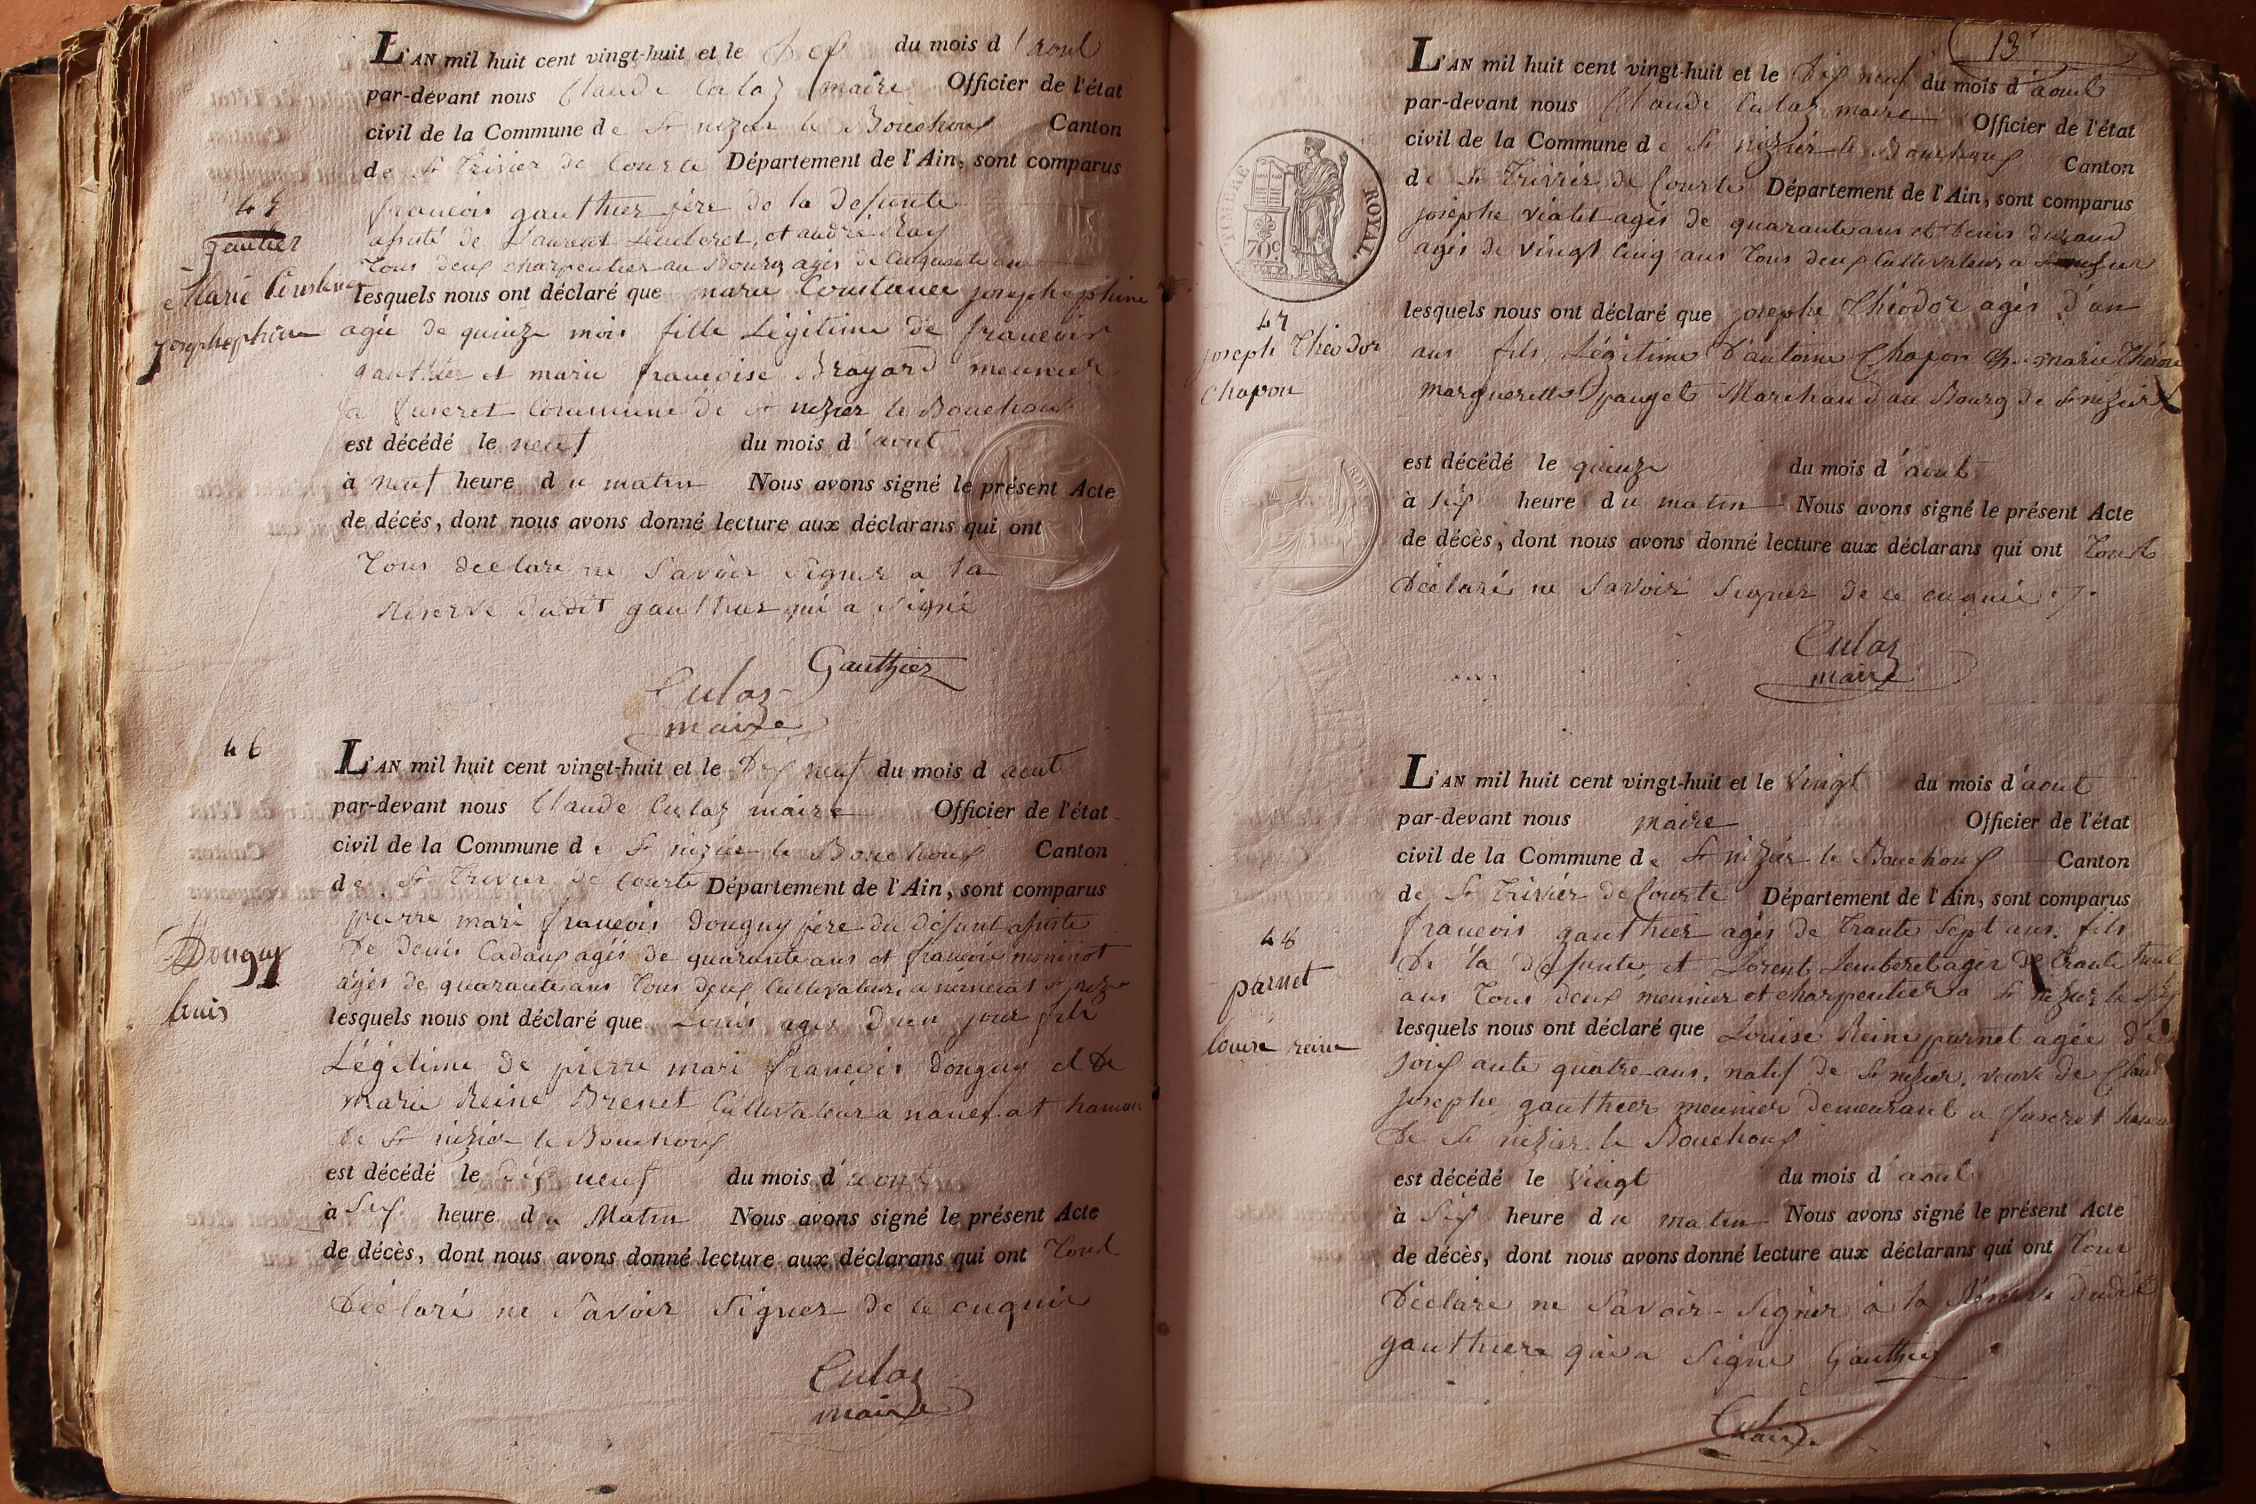 L'AN mil huit cent vingt-huit et le Dix du mois d'aout
par-devant nous Claude Culaz maire Officier de l'état
civil de la Commune de St nizier le Bouchoux Canton
de St Trivier de Courte Département de l'Ain, sont comparus
45
gautier
Marie Constance
Josephephine
francois gauthier père de la defunte
asisté de Laurent Lemberet, et andré Ray
Tous deux charpentier au Bourg agés de cinquante ans
lesquels nous ont déclaré que marie Constance josephephine
agée de quinze mois fille Légitime de francois
gauthier et marie francoise Brayard meunier
a fuseret Commune de St nizier le Bouchoux
est décédé le neuf du mois d'aout
à neuf heure du matin Nous avons signé le présent Acte
de décés, dont nous avons donné lecture aux déclarans qui ont
Tous declare ne Savoir Signer a la
Reserve dudit gauthier qui a Signé
Gauthier
Culaz
maire
46
L'AN mil huit cent vingt-huit et le Dix neuf du mois d aout
par-devant nous Claude Culaz maire Officier de l'état
civil de la Commune de St nizier le Bouchoux Canton
de St Trivier de Courte Département de l'Ain, sont comparus
Douguy
Louis
pierre mari francois Douguy père du défunt asisté
De Denis Cadoux agés de quarante ans et francois moninot
agés de quarante ans Tous deux Cultivateur a St niz
lesquels nous ont déclaré que Louis agés d'un jour fils
Légitime de pierre mari francois Douguy et De
marie Reine Brenet Cultivateur a hamau
De St nizier le Bouchoux
est décédé le dix neuf du mois d'aout
à Six heure du Matin Nous avons signé le présent Acte
de décès, dont nous avons donné lecture aux déclarans qui ont Tout
Déclaré ne Savoir Signer de ce enquie
Culaz
maire
13
L'AN mil huit cent vingt-huit et le Dix neuf du mois d'aout
par-devant nous Claude Culaz maire Officier de l'état
civil de la Commune de St nizier le Bouchoux Canton
de St Trivier de Courte Département de l'Ain, sont comparus
TIMBRE ROYAL
70c
josephe Vialet agés de quarante ans et Denis durand
agés de Vingt Cinq ans Tous deux Cultivateur a St nizier
47
joseph Théodor
Chapon
lesquels nous ont déclaré que josephe Théodor agés d'un
ans fils Légitime d'antoine Chapon et marie
marguerette pauget Marchand au Bourg de St nizier
est décédé le quinze du mois d'aout
à Six heure du matin Nous avons signé le présent Acte
de décès, dont nous avons donné lecture aux déclarans qui ont Tout
Déclaré ne Savoir Signer de ce enquie
Culaz
maire
L'AN mil huit cent vingt-huit et le Vingt du mois d'aout
par-devant nous maire Officier de l'état
civil de la Commune de St nizier le Bouchoux Canton
de St Trivier de Courte Département de l'Ain, sont comparus
48
parnet
Louise reine
francois gauthier agés de Trante Sept ans. fils
De la défunte, et Lorent Lemberet agér de Trante
ans Tous deux meunier et charpentier a St nizier le
lesquels nous ont déclaré que Louise Reine parnet agée de
soixante quatre ans, natif de St nizier, veuve de Claude
Josephe gauthier meunier demeurant a fuseret
De St nizier le Bouchoux
est décédé le Vingt du mois d'aout
à Six heure du matin Nous avons signé le présent Acte
de décès, dont nous avons donné lecture aux déclarans qui ont Tous
Déclare ne Savoir Signer a la Réserve dudit
gauthier qui a Signe Gauthier
Culaz
maire